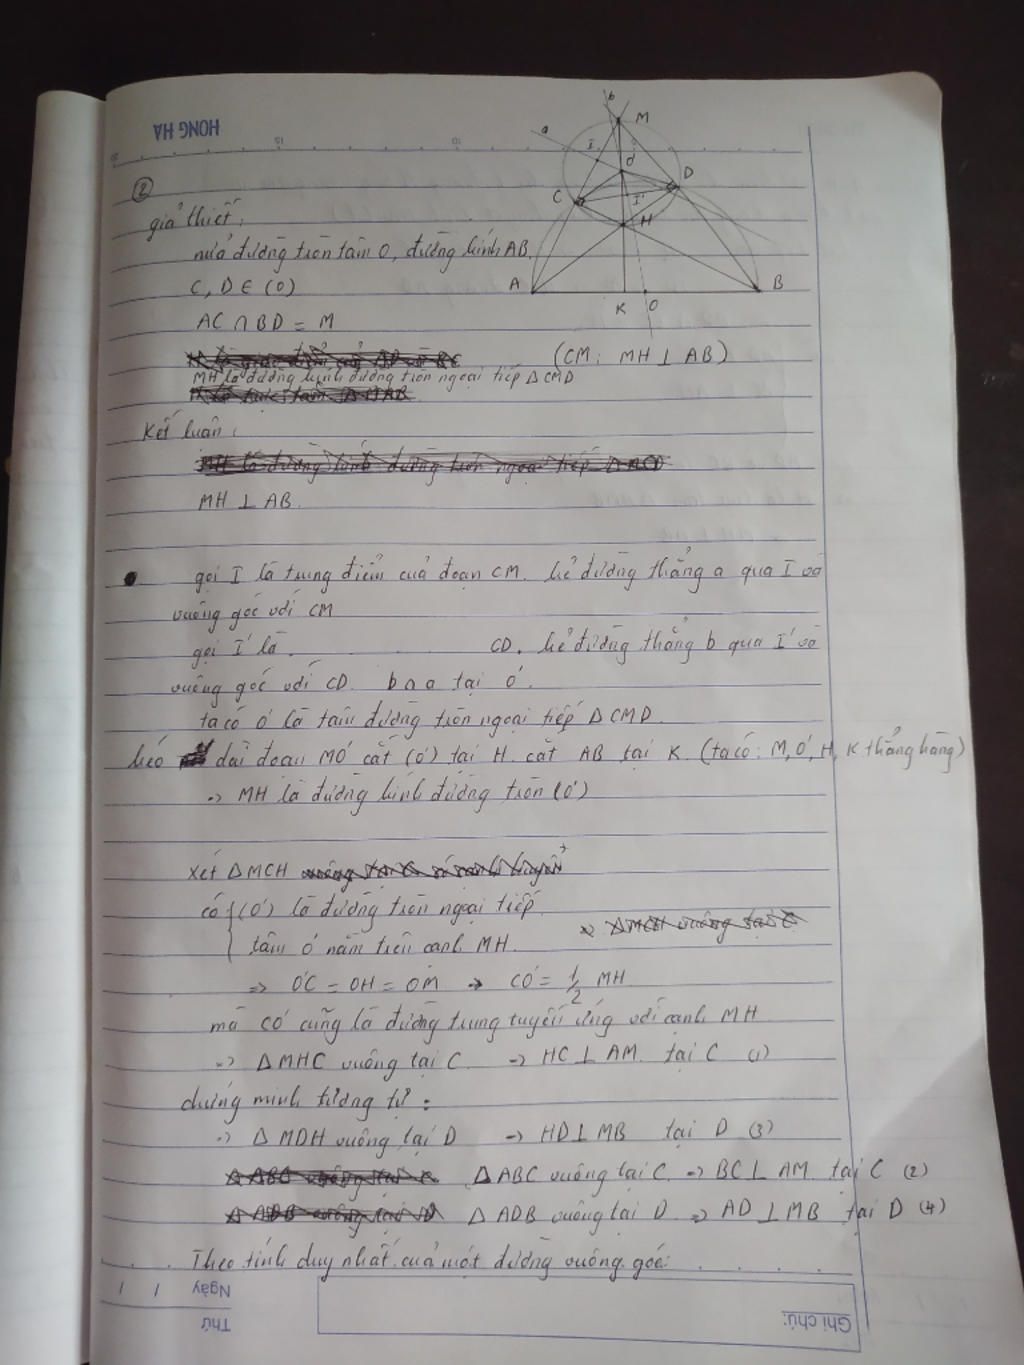 HONG HA
②
giả thiết:
nửa đường tròn tâm O, đường kính AB.
C, D ∈ (O)
AC ∩ BD = M
(CM: MH ⊥ AB)
MH là đường kính đường tròn ngoại tiếp △CMD
Kết luận:
MH ⊥ AB.
gọi I là trung điểm của đoạn CM. kẻ đường thẳng a qua I và
vuông góc với CM
gọi I' là . CD. kẻ đường thẳng b qua I' và
vuông góc với CD. b ∩ a tại O'.
ta có O' là tâm đường tròn ngoại tiếp △CMD.
kéo dài đoạn MO' cắt (O') tại H. cắt AB tại K. (ta có: M, O', H, K thẳng hàng)
=> MH là đường kính đường tròn (O')
Xét △MCH
có { (O') là đường tròn ngoại tiếp.
tâm O' nằm trên cạnh MH.
=> O'C = OH = OM → CO' = 1/2 MH
mà CO' cũng là đường trung tuyến ứng với cạnh MH
=> △MHC vuông tại C. → HC ⊥ AM. tại C (1)
chứng minh tương tự:
=> △MDH vuông tại D → HD ⊥ MB tại D (3)
△ABC vuông tại C. => BC ⊥ AM. tại C (2)
△ADB vuông tại D => AD ⊥ MB tại D (4)
Theo tính duy nhất của một đường vuông góc:
Ngày / /
Thứ
Ghi chú:
b
M
a
I
O'
D
C
I'
H
A
K
O
B